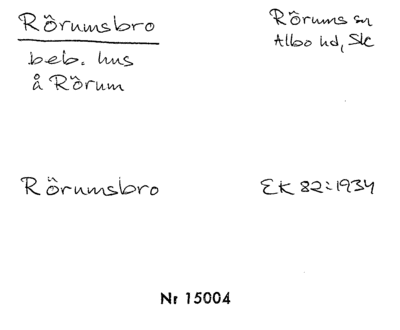 Rörumsbro
Rörums sn
Albo hd, Sk
beb. hus
å Rörum
Rörumsbro
EK 82:1934
Nr 15004